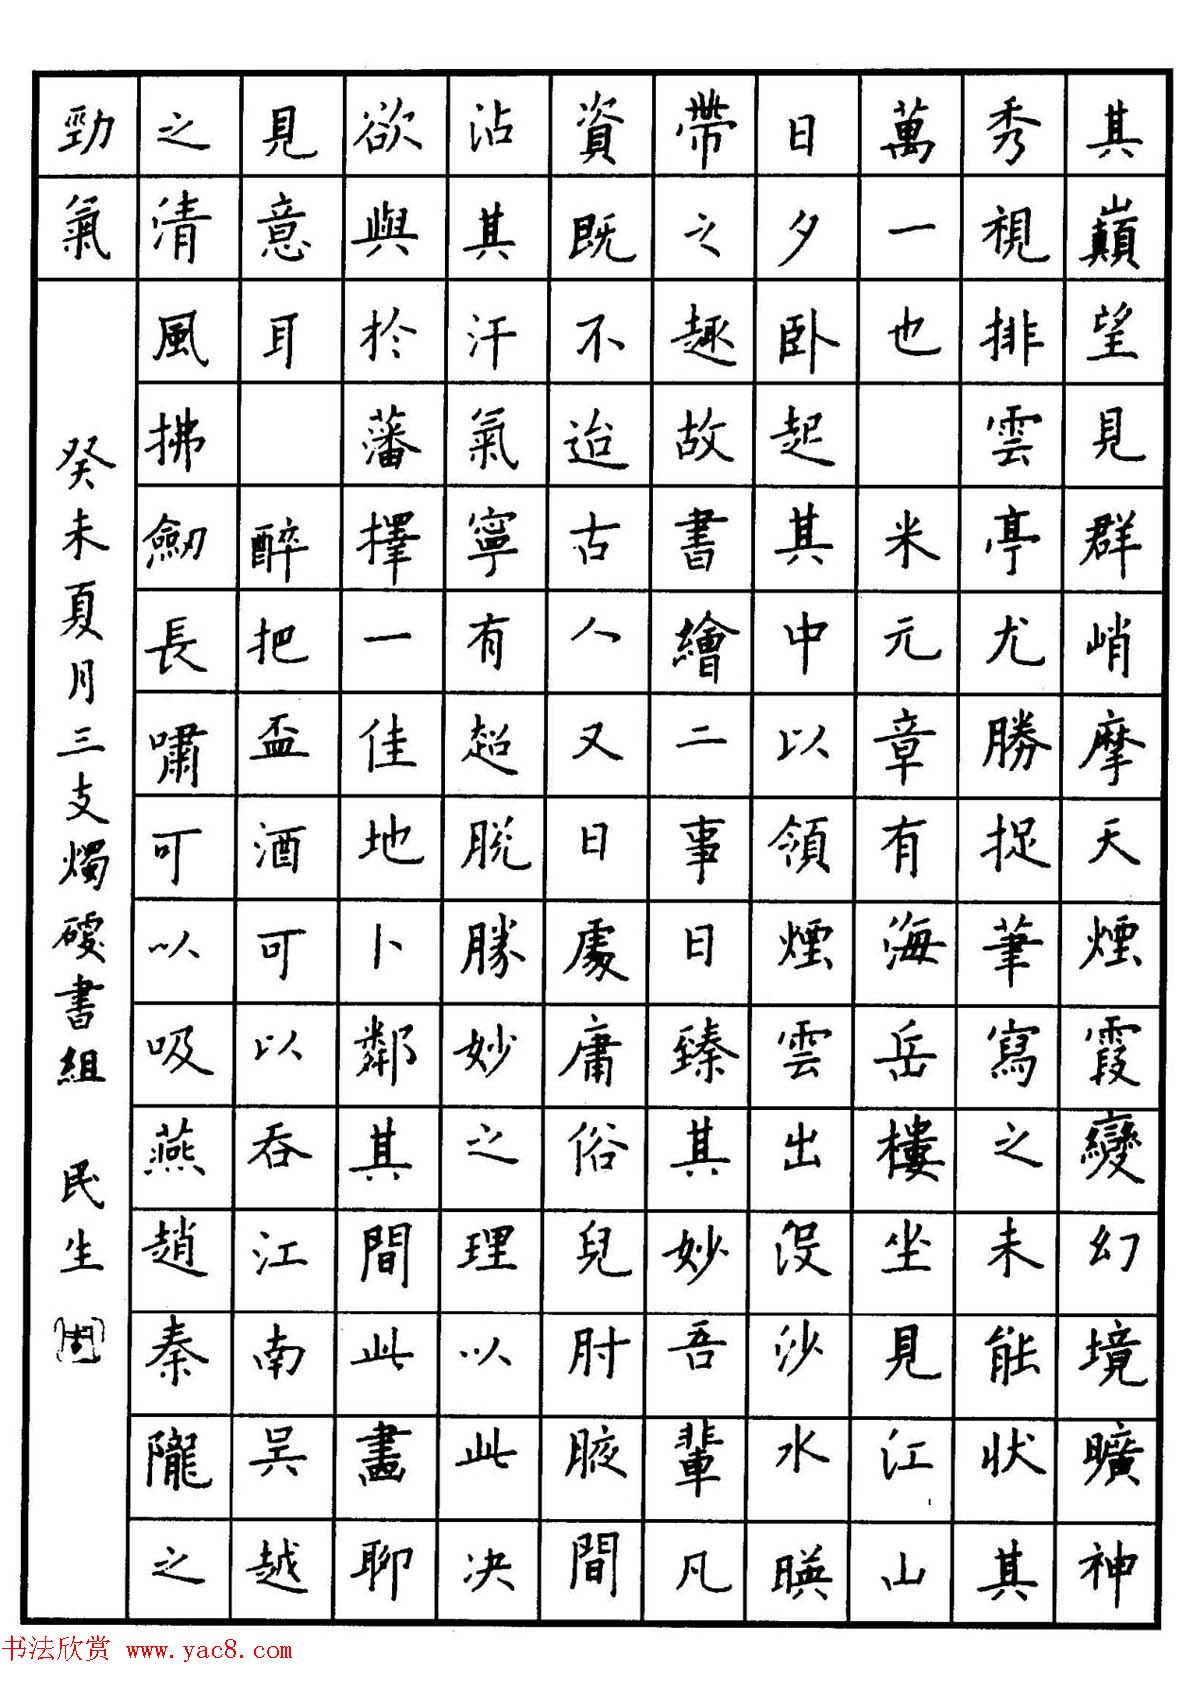 其巔望見群峭摩天煙霞變幻境曠神
秀視排雲亭尤勝捉筆寫之未能狀其
萬一也 米元章有海岳樓坐見江山
日夕卧起其中以領煙雲出沒沙水暎
帶之趣故書繪二事日臻其妙吾輩凡
資既不迨古人又日處庸俗兒肘腋間
沾其汗氣寧有超脱勝妙之理以此决
欲與於藩擇一佳地卜鄰其間此畫聊
見意耳 醉把盃酒可以吞江南吴越
之清風拂劒長嘯可以吸燕趙秦隴之
勁氣
癸未夏月三支燭硬書組 民生
书法欣赏 www.yac8.com